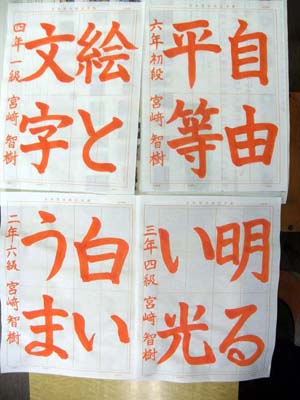 自由
平等
六年 初段 宮﨑 智樹
絵と
文字
四年 一級 宮﨑 智樹
明る
い光
三年 四級 宮﨑 智樹
白い
うま
二年 六級 宮﨑 智樹